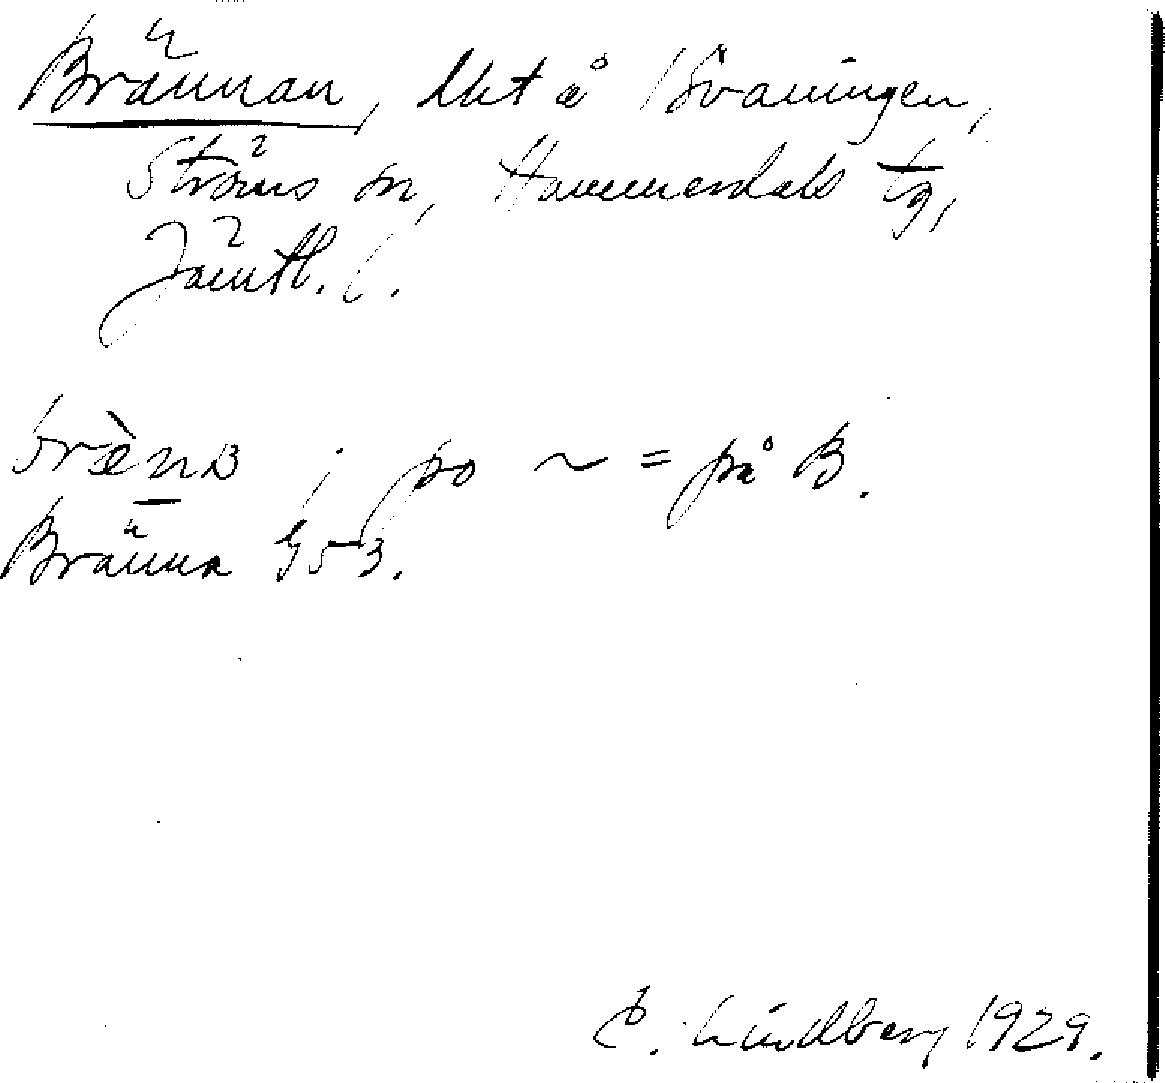 Brännan, lht å Svaningen,
Ströms sn, Hammerdals tg,
Jämtl. l.
bræ̀nɐ ; po ~ = på B.
Bränna G53.
C. Lindberg 1929.